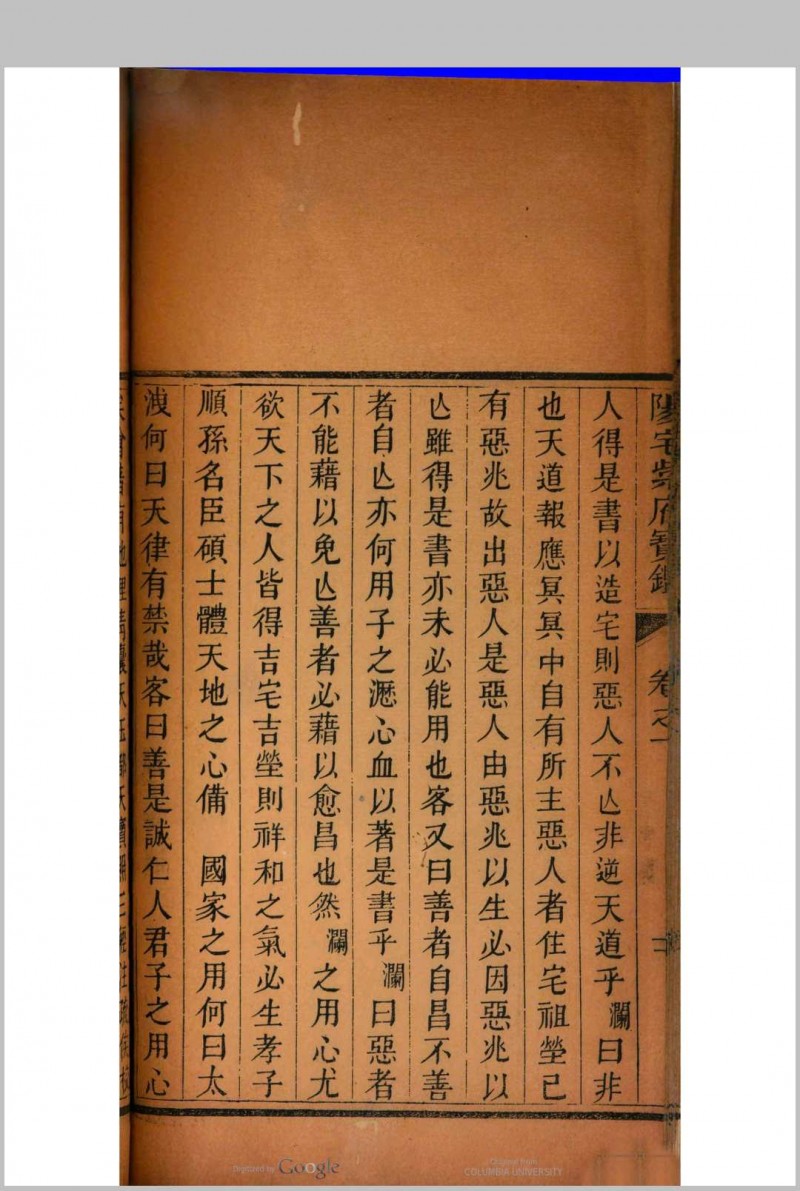 陽宅紫府寶鑑 卷之一 二
人得是書以造宅則惡人不亾非逆天道乎瀾曰非
也天道報應冥冥中自有所主惡人者住宅祖塋已
有惡兆故出惡人是惡人由惡兆以生必因惡兆以
亾雖得是書亦未必能用也客又曰善者自昌不善
者自亾亦何用子之瀝心血以著是書乎瀾曰惡者
不能藉以免亾善者必藉以愈昌也然瀾之用心尤
欲天下之人皆得吉宅吉塋則祥和之氣必生孝子
順孫名臣碩士體天地之心備 國家之用何曰太
洩何曰天律有禁哉客曰善是誠仁人君子之用心
Digitized by Google
Original from
COLUMBIA UNIVERSITY